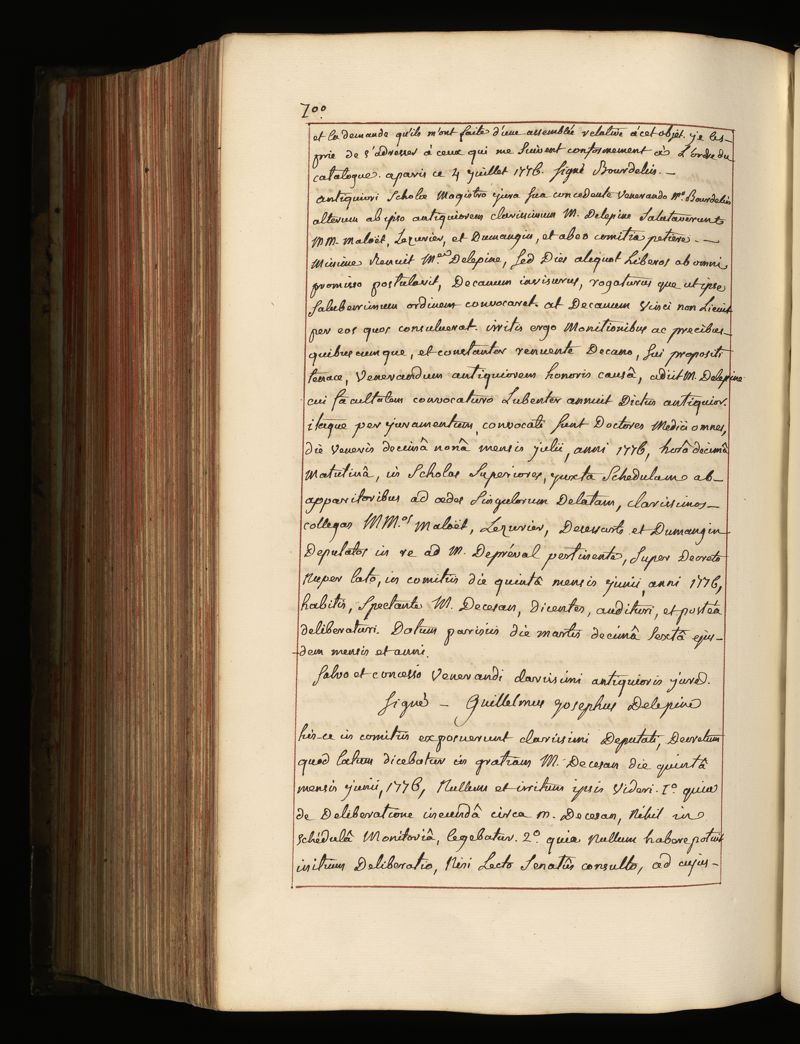 700.
et la demande qu'ils m'ont faite d'une assemblée relative à cet objet. je les-
prie de s'adresser à ceux qui me suivent conformement à L'ordre du
catalogue. a paris ce 4 juillet 1776. signé Bourdelin. —
antiquiori Scholæ Magistro jura sua concedente venerando M.o Bourdelin
alterum ab ipso antiquiorem clarissimum M. Delepine Salutaverunt
MM. Maloët, Lezurier, et Dumangin, et ab eo comitia petiere. —
Minime renuit M.er Delepine, sed Dies aliquot Liberos ab omni
promisso postulavit, Decanum invisurus, rogaturus que ut ipse
Saluberrimum ordinem convocaret. at Decanum Vinci non Licuit
per eos quos consuluerat. irritis ergo Monitionibus ac precibus-
quibuscumque, et constanter renuente Decano, sui propositi
tenace, Venerandum antiquiorem honoris causâ, adiit M. Delepine
cui facultatem convocaturo Lubenter annuit Dictus antiquior.
itaque per juramentum, convocati sunt Doctores Medici omnes,
die Veneris decimâ nonâ mensis julii, anni 1776, horâ decimâ
Matutinâ, in Scholas Superiores, juxta Schedulam ab-
apparitoribus ad ædes Singulorum Delatam, clarissimos-
collegas MM.os Maloët, Lezurier, Desessarts et Dumangin
Deputatos in re ad M. Depréval pertinente, Super Decreto
Nuper lato, in comitiis die quintâ mensis junii, anni 1776,
habitis, Spectante M. Decesan, dicentes, audituri, et posteà
deliberaturi. Datum parisiis die martis decimâ Sextâ ejus-
-dem mensis et anni.
Salvo et concesso Venerandi clarissimi antiquioris jure.
Signé — Guillelmus josephus Delepine
his-ce in comitiis exposuerunt clarissimi Deputati, Decretum
quod latum dicebatur in gratiam M. Decesan die quintâ
mensis junii, 1776, Nullum et irritum ipsis Videri. 1.o quia
de Deliberatione ineundâ circa m. Decesan, Nihil in
schédulâ Monitoriâ, legebatur. 2.o quia Nullum habere potuit
initium Deliberatio, Nisi Lecto Senatûs consulto, ad cujus-